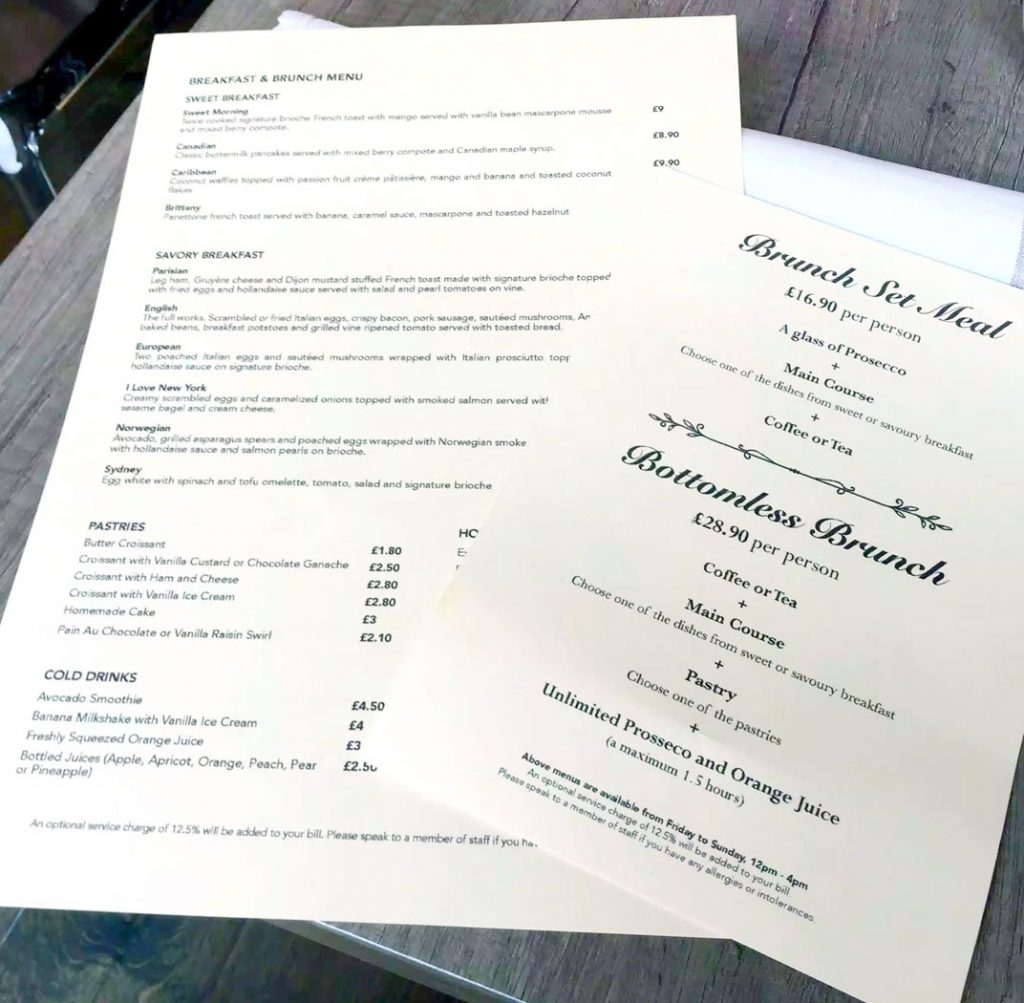 BREAKFAST & BRUNCH MENU
SWEET BREAKFAST
Sweet Morning
£9
Twice cooked signature brioche French toast with mango served with vanilla bean mascarpone mousse
and mixed berry compote.
£8.90
Canadian
Classic buttermilk pancakes served with mixed berry compote and Canadian maple syrup.
£9.90
Caribbean
Coconut waffles topped with passion fruit crème pâtissière, mango and banana and toasted coconut
flakes
Brittany
Panettone french toast served with banana, caramel sauce, mascarpone and toasted hazelnut
SAVORY BREAKFAST
Parisian
Leg ham, Gruyère cheese and Dijon mustard stuffed French toast made with signature brioche topped
with fried eggs and hollandaise sauce served with salad and pearl tomatoes on vine.
English
The full works. Scrambled or fried Italian eggs, crispy bacon, pork sausage, sautéed mushrooms,
baked beans, breakfast potatoes and grilled vine ripened tomato served with toasted bread.
European
Two poached Italian eggs and sautéed mushrooms wrapped with Italian prosciutto
hollandaise sauce on signature brioche.
I Love New York
Creamy scrambled eggs and caramelized onions topped with smoked salmon served
sesame bagel and cream cheese.
Norwegian
Avocado, grilled asparagus spears and poached eggs wrapped with Norwegian smoke
with hollandaise sauce and salmon pearls on brioche.
Sydney
Egg white with spinach and tofu omelette, tomato, salad and signature brioche
PASTRIES
Butter Croissant £1.80
Croissant with Vanilla Custard or Chocolate Ganache £2.50
Croissant with Ham and Cheese £2.80
Croissant with Vanilla Ice Cream £2.80
Homemade Cake £3
Pain Au Chocolate or Vanilla Raisin Swirl £2.10
HO
COLD DRINKS
Avocado Smoothie £4.50
Banana Milkshake with Vanilla Ice Cream £4
Freshly Squeezed Orange Juice £3
Bottled Juices (Apple, Apricot, Orange, Peach, Pear £2.50
or Pineapple)
An optional service charge of 12.5% will be added to your bill. Please speak to a member of staff if you
Brunch Set Meal
£16.90 per person
A glass of Prosecco
+
Main Course
Choose one of the dishes from sweet or savoury breakfast
+
Coffee or Tea
Bottomless Brunch
£28.90 per person
Coffee or Tea
+
Main Course
Choose one of the dishes from sweet or savoury breakfast
+
Pastry
Choose one of the pastries
+
Unlimited Prosseco and Orange Juice
(a maximum 1.5 hours)
Above menus are available from Friday to Sunday, 12pm - 4pm
An optional service charge of 12.5% will be added to your bill.
Please speak to a member of staff if you have any allergies or intolerances.